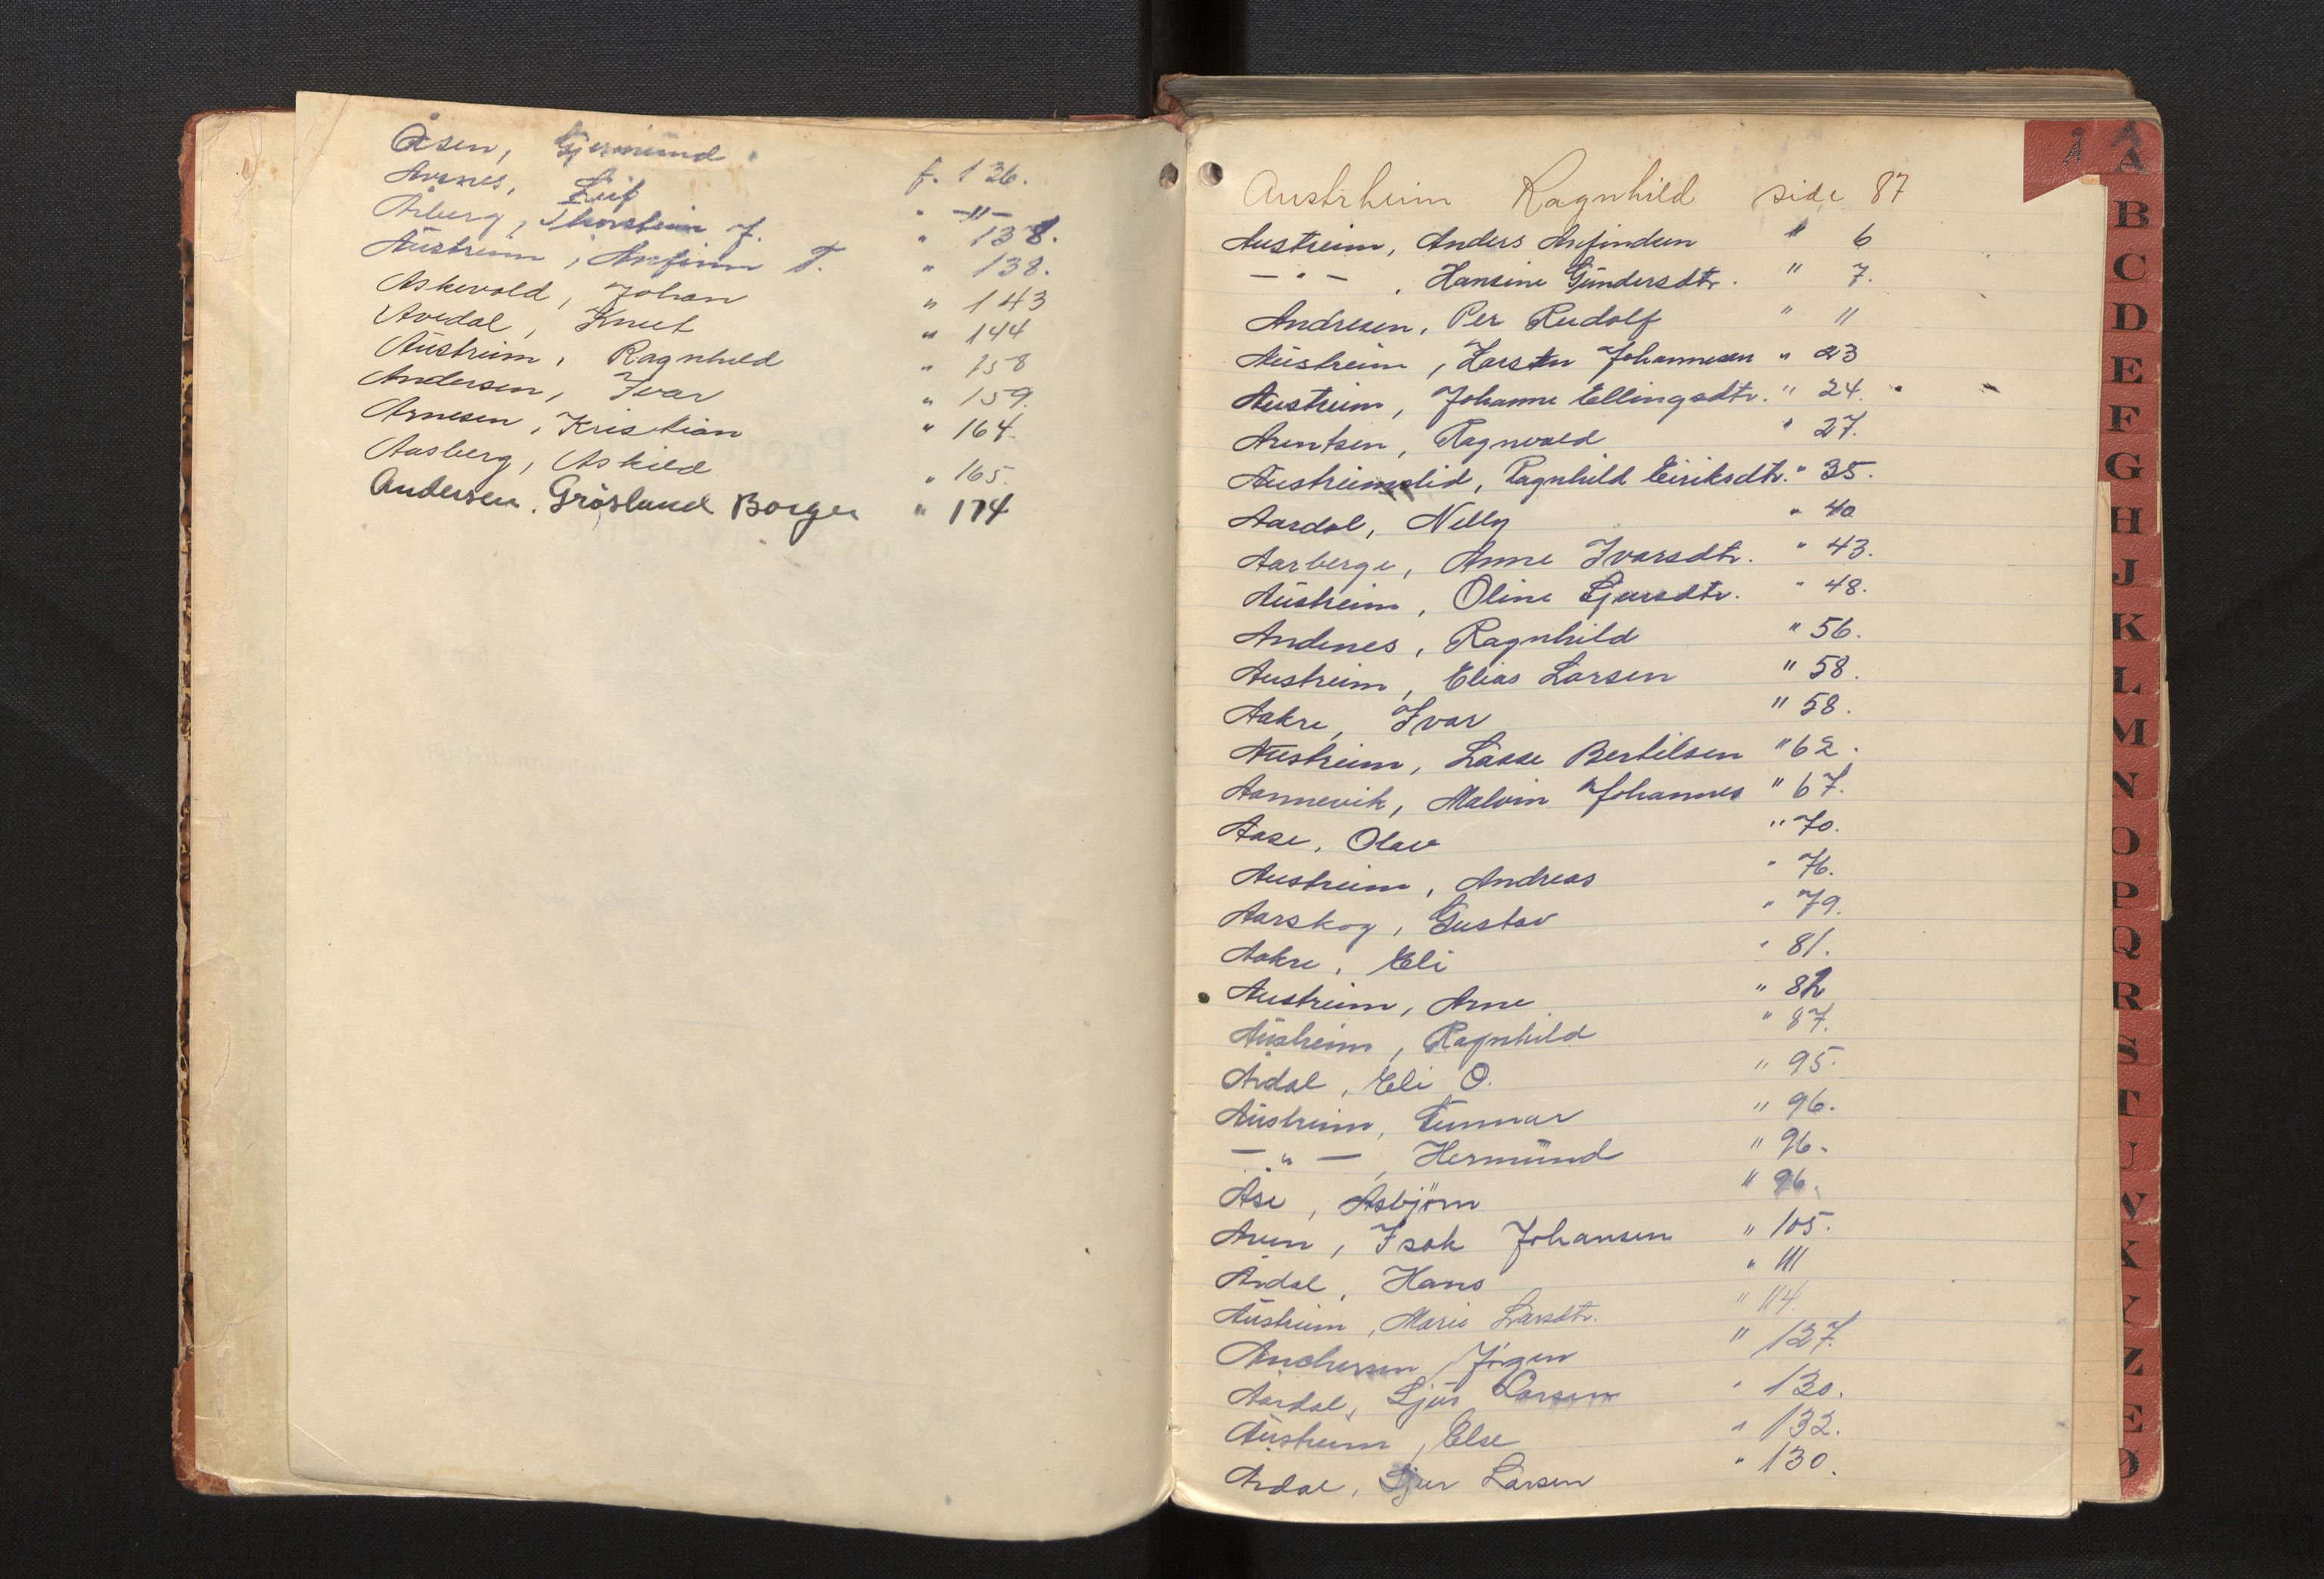 Åsen, Gjermund f. 136.
Arsnes, Leif " -"-
Årberg, Thorstein J. " 138.
Austreim, Anfinn T. " 138.
Askevold, Johan " 143
Avedal, Knut " 144
Austreim, Ragnhild " 158
Andersen, Ivar " 159.
Arnesen, Kristian " 164.
Aasberg, Askild " 165.
Andersen, Gröslund Borger " 174
A
Austrheim Ragnhild side 87
Austreim, Anders Anfindsen " 6
— " — , Hansine Gundersdtr. " 7.
Andresen, Per Rudolf " 11
Austreim, Karsten Johannesen " 23
Austreim, Johanne Ellingsdtr. " 24.
Arentsen, Ragnvald " 27.
Austreimslid, Ragnhild Eiriksdtr. " 35.
Aardal, Nelly " 40
Aarberge, Anne Ivarsdtr. " 43.
Austreim, Oline Sjursdtr. " 48.
Andenes, Ragnhild " 56.
Austreim, Elias Larsen " 58.
Aakre, Ivar " 58.
Austreim, Lasse Bertilsen " 62.
Aannevik, Malvin Johannes " 67.
Aase, Olav " 70.
Austreim, Andreas " 76.
Aarskog, Gustav " 79.
Aakre, Eli " 81.
Austreim, Arne " 82
Austreim, Ragnhild " 87.
Årdal, Eli O. " 95.
Austreim, Gunnar " 96.
— " — , Hermund " 96.
Åse, Asbjörn " 96.
Aven, Isak Johansen " 105.
Årdal, Hans " 111
Austreim, Marie Larsdtr. " 114.
Anchersen, Jörgen " 127.
Aardal, Sjur Larsen " 130.
Austreim, Else " 132.
Årdal, Sjur Larsen " 130.
A
B
C
D
E
F
G
H
J
K
L
M
N
O
P
Q
R
S
T
U
V
X
Y
Z
Æ
Ø